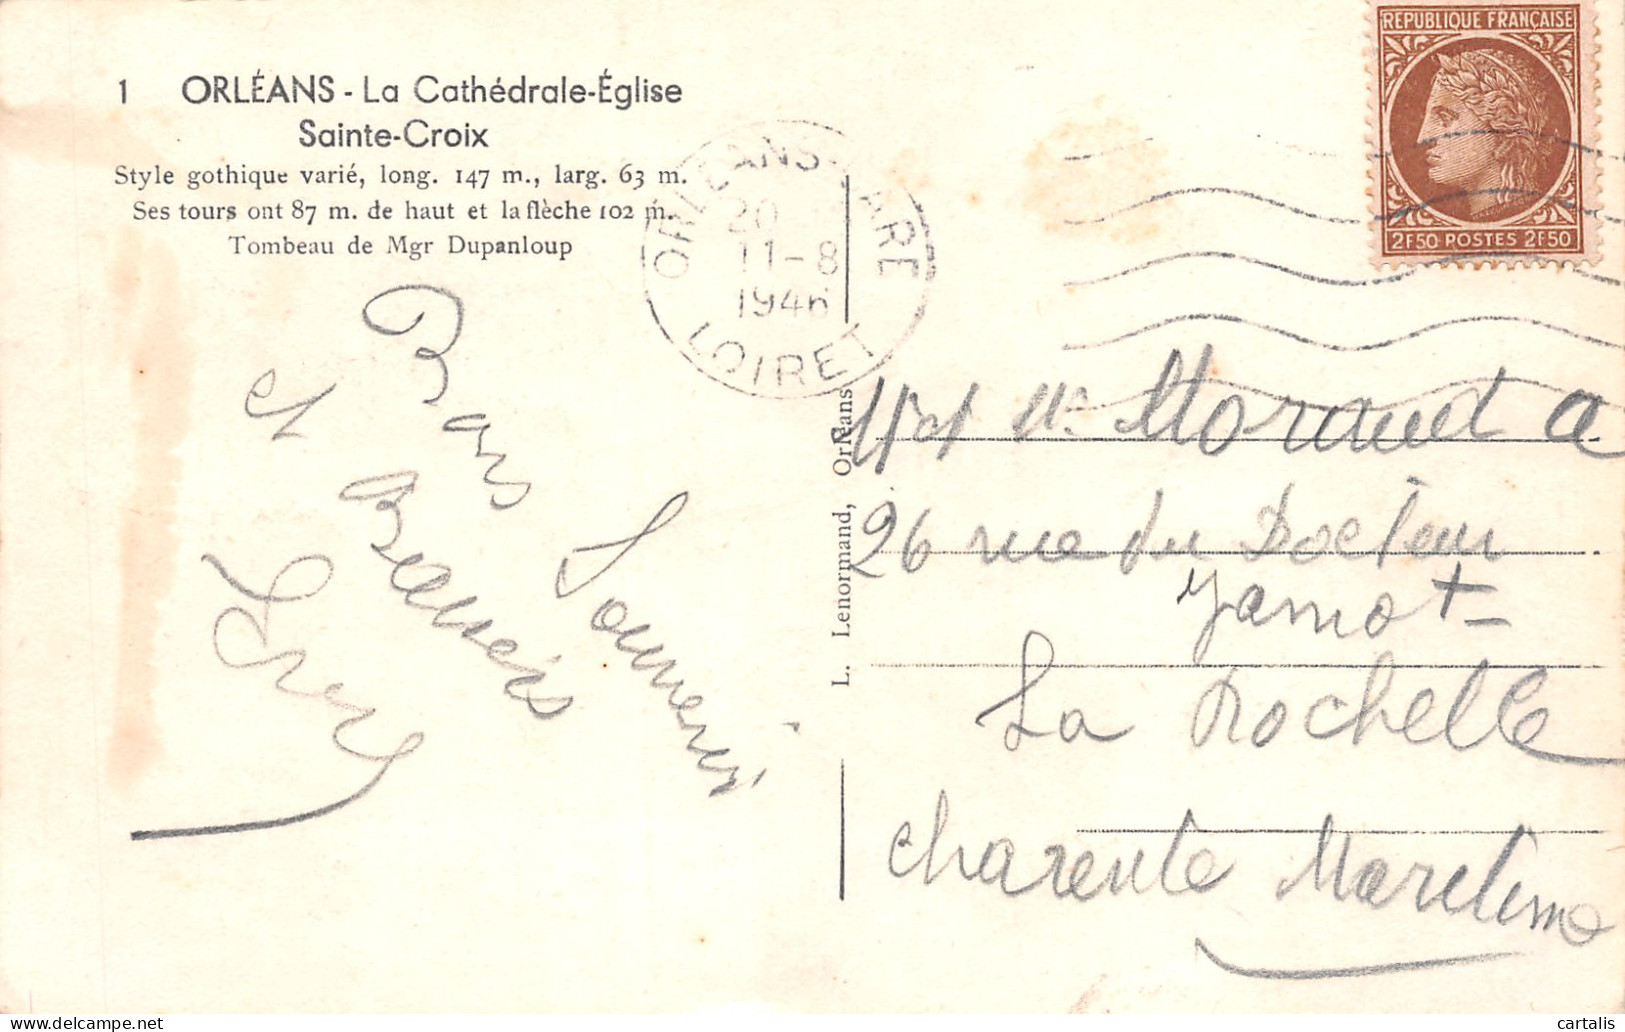 1 ORLÉANS - La Cathédrale-Église
Sainte-Croix
Style gothique varié, long. 147 m., larg. 63 m.
Ses tours ont 87 m. de haut et la flèche 102 m.
Tombeau de Mgr Dupanloup
REPUBLIQUE FRANÇAISE
2F50 POSTES 2F50
ORLEANS-GARE
20
11-8
1946
LOIRET
Bons Souvenirs
et Baisers
L. Lenormand, Orléans
26 rue du Docteur
Jamot
La Rochelle
Charente Maretime
delcampe.net
cartalis